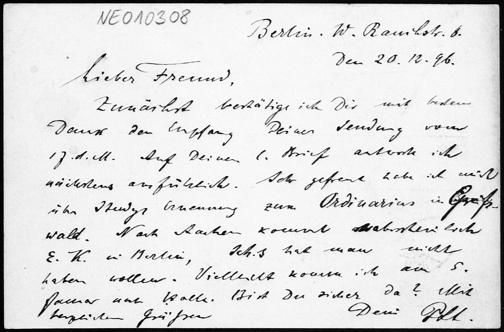 NEO10308
Berlin. W. Rauchstr. 6.
Den 20. 12. 96.
Lieber Freund,
Zunächst bestätige ich Dir mit bestem
Dank den Empfang Deiner Sendung vom
17. d. M. Auf Deinen l. Brief antworte ich
nächstens ausführlich. Sehr gefreut habe ich mich
über Study's Ernennung zum Ordinarius in Greifs-
wald. Nach Aachen kommt wahrscheinlich
E. K in Berlin, hat man nicht
haben wollen. Vielleicht komme ich am 5.
Januar nach Halle. Bist Du sicher da? Mit
herzlichen Grüßen Dein